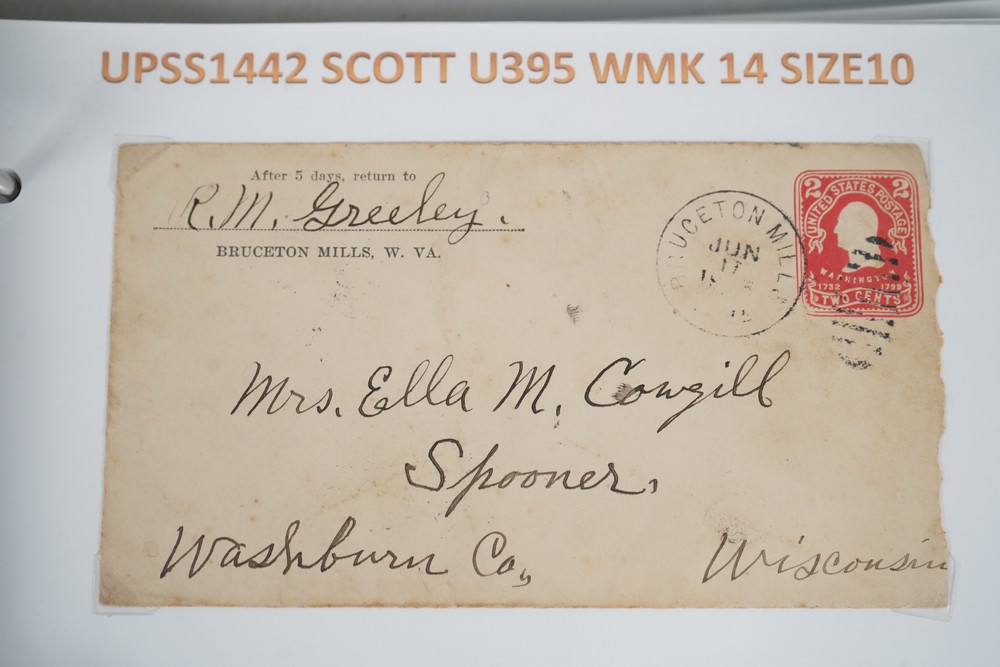 UPSS1442 SCOTT U395 WMK 14 SIZE10
After 5 days, return to
R. M. Greeley.
BRUCETON MILLS, W. VA.
BRUCETON MILLS
JUN
17
2 2
UNITED STATES POSTAGE
WASHINGTON
1732 1799
TWO CENTS
Mrs. Ella M. Cowgill
Spooner,
Washburn Co.,
Wisconsin